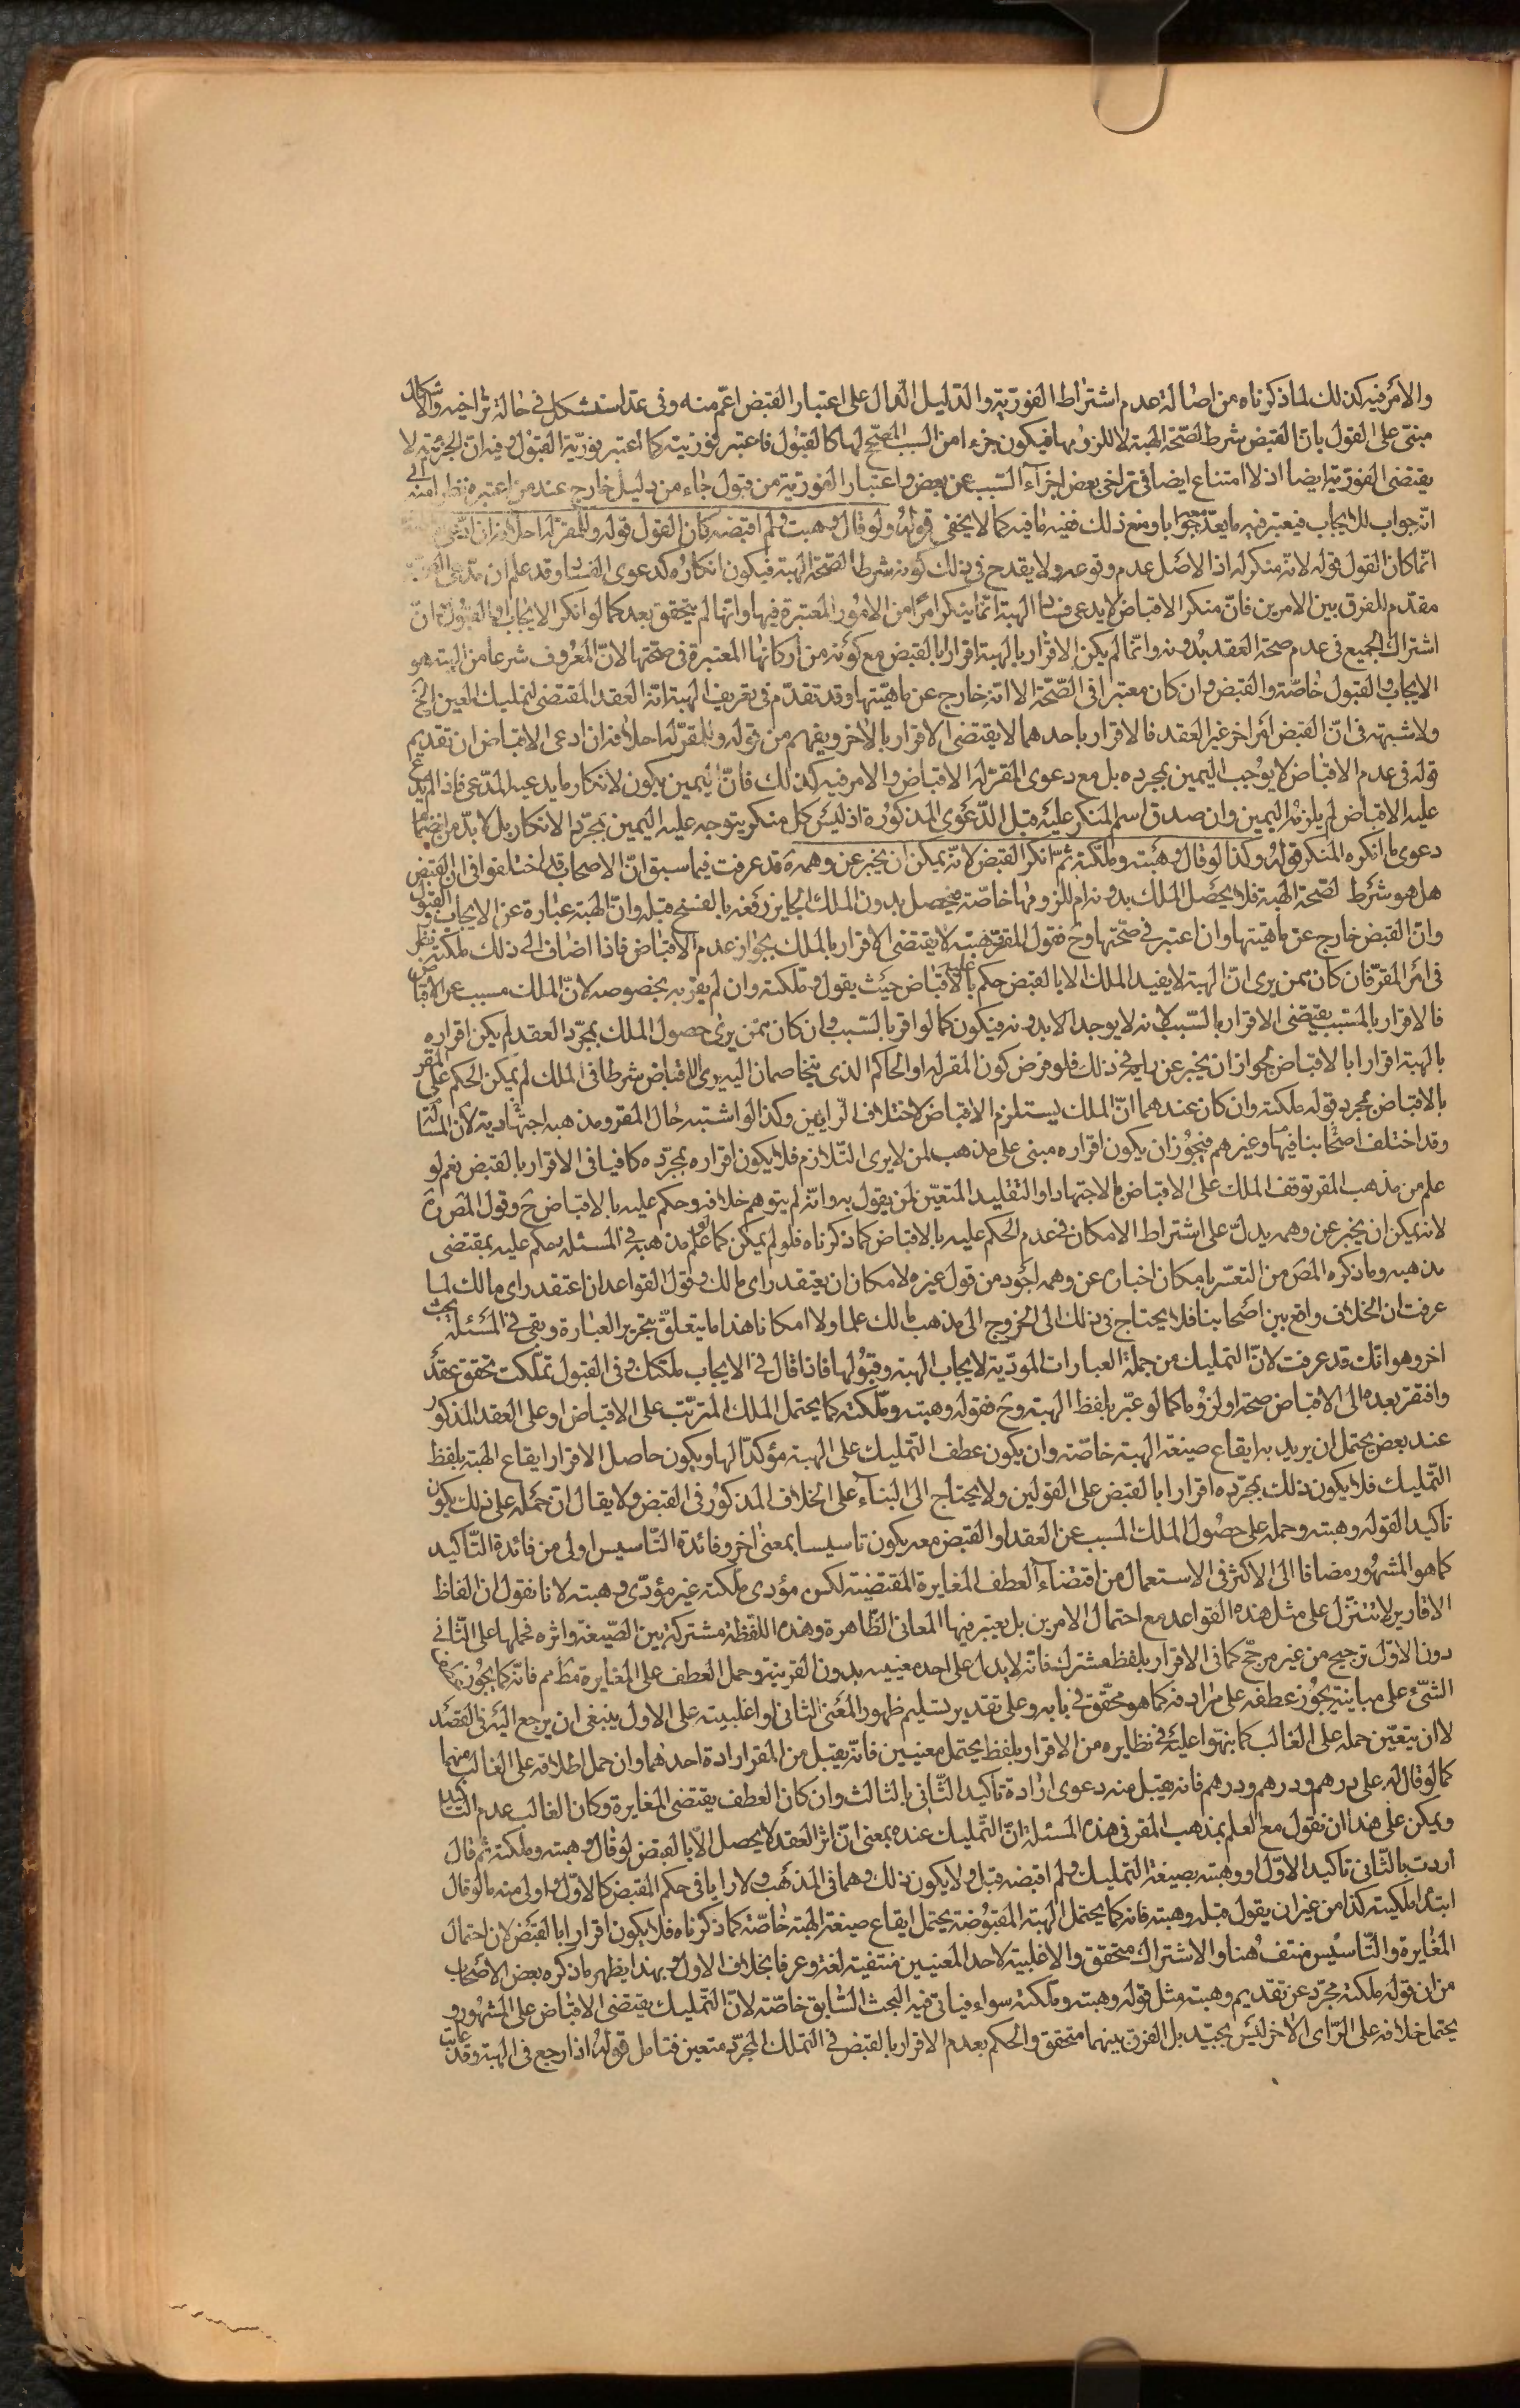 والأمر فيه كذلك لما ذكرناه من اصالة عدم اشتراط الفورية والدليل الدال على اعتبار القبض اعم منه وفى عد استشكل فى حالة تراخيه والاشكال
مبنى على القول بان القبض شرط لصحة الهبة لا للزومها فيكون جزء امن السبب المصحح لها كالقبول فاعتبر فوريته كما اعتبر فورية القبول وفيه ان الجزئية لا
يقتضى الفورية ايضا اذ لا امتناع ايضا فى تراخى بعض اجزاء السبب عن بعض واعتبار الفورية من قبول جاء من دليل خارج عند من اعتبره نظرا منه الى
انه جواب للايجاب فيعتبر فيه ما يعد معه جوابا ومع ذلك ففيه ما فيه كما لا يخفى قوله ولو قال وهبت ولم اقبضه كان القول قوله وللمقر له احلافه ان ادعى
انما كان القول قوله لانه منكر له اذ الاصل عدم وقوعه ولا يقدح فى ذلك كونه شرطا لصحة الهبة فيكون انكاره كدعوى الفساد وقد علم ان مدعى الصحة
مقدم للفرق بين الامرين فان منكر الاقباض لا يدعى فساد الهبة انما ينكر امرا من الامور المعتبرة فيها وانها لم يتحقق بعد كما لو انكر الايجاب او القبول فان
اشتراك الجميع فى عدم صحة العقد بدونه وانما لم يكن الاقرار بالهبة اقرارا بالقبض مع كونه من اركانها المعتبرة فى صحتها لان المعروف شرعا من الهبة هو
الايجاب والقبول خاصة والقبض وان كان معتبرا فى الصحة الا انه خارج عن ماهيتها وقد تقدم فى تعريف الهبة انه العقد المقتضى لتمليك العين الخ
ولا شبهة فى ان القبض امر اخر غير العقد فالاقرار باحدهما لا يقتضى الاقرار بالاخر ويفهم من قوله وللمقر له احلافه ان ادعى الاقباض ان تقديم
قوله فى عدم الاقباض لا يوجب اليمين بمجرده بل مع دعوى المقر له الاقباض والامر فيه كذلك فان اليمين يكون لانكار ما يدعيه المدعى فاذا لم يدع
عليه الاقباض لم يلزمه اليمين وان صدق اسم المنكر عليه قبل الدعوى المذكورة اذ ليس كل منكر يتوجه عليه اليمين بمجرد الانكار بل لا بد من انضمام
دعوى ما انكره المنكر قوله وكذا لو قال وهبته وملكته ثم انكر القبض لانه يمكن ان يخبر عن وهمه قد عرفت فيما سبق ان الاصحاب قد اختلفوا فى ان القبض
هل هو شرط لصحة الهبة فلا يحصل الملك بدونه ام للزومها خاصة فيحصل بدون الملك الجايز رفعه بالفسخ قبله وان الهبة عبارة عن الايجاب والقبول
وان القبض خارج عن ماهيتها وان اعتبر فى صحتها وح فقول المقر وهبته لا يقتضى الاقرار بالملك بجواز عدم الاقباض فاذا اضاف الى ذلك ملكته نظر
فى امر المقر فان كان ممن يرى ان الهبة لا يفيد الملك الا بالقبض حكم عليه بالاقباض حيث يقول وملكته وان لم يقر به بخصوصه لان الملك مسبب عن الاقباض
فالاقرار بالمسبب يقتضى الاقرار بالسبب لانه لا يوجد الا بدونه فيكون كما لو اقر بالسبب وان كان ممن يرى حصول الملك بمجرد العقد لم يكن اقراره
بالهبة اقرارا بالاقباض لجواز ان يخبر عن رايه فى ذلك فلو فرض كون المقر له او الحاكم الذى يتخاصمان اليه يرى الاقباض شرطا فى الملك لم يمكن الحكم على المقر
بالاقباض بمجرد قوله ملكته وان كان عندهما ان الملك يستلزم الاقباض لاختلاف الرايين وكذا لو اشتبه حال المقر ومذهبه اجتهادية لان المسئلة
وقد اختلف اصحابنا فيها وغيرهم فيجوز ان يكون اقراره مبنى على مذهب لمن لا يرى التلازم فلا يكون اقراره بمجرده كافيا فى الاقرار بالقبض نعم لو
علم من مذهب المقر توقف الملك على الاقباض بالاجتهاد او التقليد المتعين لمن يقول به وانه لم يتوهم خلافه وحكم عليه بالاقباض ح وقول المص ره
لانه يمكن ان يخبر عن وهمه يدل على اشتراط الامكان فى عدم الحكم عليه بالاقباض كما ذكرناه فلو لم يمكن كما لو علم مذهبه فى المسئلة وحكم عليه بمقتضى
مذهبه وما ذكره المص من التعبير بامكان اخباره عن وهمه اجود من قول غيره لامكان ان يعتقد راى مالك وقول القواعد ان اعتقد راى مالك لما
عرفت ان الخلاف واقع بين اصحابنا فلا يحتاج فى ذلك الى الخروج الى مذهب مالك علما ولا امكانا هذا ما يتعلق بتحرير العبارة وبقى فى المسئلة بحث
اخر وهو انك قد عرفت لان التمليك من جملة العبارات المودية لايجاب الهبة وقبولها فاذا قال فى الايجاب ملكتك وفى القبول تملكت تحقق عقد
وافتقر بعده الى الاقباض صحة او لزوما كما لو عبر بلفظ الهبة وح فقوله وهبته وملكته كما يحتمل الملك المترتب على الاقباض او على العقد المذكور
عند بعض يحتمل ان يريد به ايقاع صيغة الهبة خاصة وان يكون عطف التمليك على الهبة مؤكدا لها ويكون حاصل الاقرار ايقاع الهبة بلفظ
التمليك فلا يكون ذلك بمجرده اقرارا بالقبض على القولين ولا يحتاج الى البناء على الخلاف المذكور فى القبض ولا يقال ان حمله على ذلك يكون
تاكيدا لقوله وهبته وحمله على حصول الملك المسبب عن العقد او القبض معه يكون تاسيسا بمعنى اخر وفائدة التاسيس اولى من فائدة التاكيد
كما هو المشهور مضافا الى الاكثر فى الاستعمال من اقتضاء العطف المغايرة المقتضية لكون مؤدى ملكته غير مؤدى وهبته لانا نقول ان الفاظ
الاقارير لا تتنزل على مثل هذه القواعد مع احتمال الامرين بل يعتبر فيها المعانى الظاهرة وهذه اللفظة مشتركة بين الصيغة واثره فحملها على الثانى
دون الاول ترجيح من غير مرجح كما فى الاقرار بلفظ مشترك فانه لا يدل على احد معنييه بدون القرينة وحمل العطف على المغايرة مط مم فانه كما يجوز عطف
الشئ على مباينه يجوز عطفه على مرادفه كما هو محقق فى بابه وعلى تقدير تسليم ظهور المعنى الثانى او اغلبيته على الاول ينبغى ان يرجع اليه فى القصد
لا ان يتعين حمله على الغالب كما نبهوا عليه فى نظايره من الاقرار بلفظ يحتمل معنيين فانه يقبل من المقر ارادة احدهما وان حمل اطلاقه على الغالب منهما
كما لو قال له على درهم ودرهم ودرهم فانه يقبل منه دعوى ارادة تاكيد الثانى بالثالث وان كان العطف يقتضى المغايرة وكان الغالب عدم التاكيد
ويمكن على هذا ان نقول مع العلم بمذهب المقر فى هذه المسئلة ان التمليك عنده بمعنى ان اثر العقد لا يحصل الا بالقبض لو قال وهبته وملكته ثم قال
اردت بالثانى تاكيد الاول او وهبته بصيغة التمليك ولم اقبضه قبل ولا يكون ذلك وهما فى المذهب ولا رايا فى حكم المقبض كالاول واولى منه ما لو قال
ابتداء ملكيته كذا من غير ان يقول قبله وهبته فانه كما يحتمل الهبة المقبوضة يحتمل ايقاع صيغة الهبة خاصة كما ذكرناه فلا يكون اقرارا بالقبض لان احتمال
المغايرة والتاسيس منتف هنا والاشتراك متحقق والاغلبية لاحد المعنيين منتفية لغة وعرفا بخلاف الاول وبهذا يظهر ما ذكره بعض الاصحاب
من ان قوله ملكته مجرد عن تقديم وهبته مثل قوله وهبته وملكته سواء فياتى فيه البحث السابق خاصة لان التمليك يقتضى الاقباض على المشهور و
يحتمل خلافه على الراى الاخر ليس بجيد بل الفرق بينهما متحقق والحكم بعدم الاقرار بالقبض فى التملك المجرد متعين فتامل قوله اذا رجع فى الهبة وقد عابت